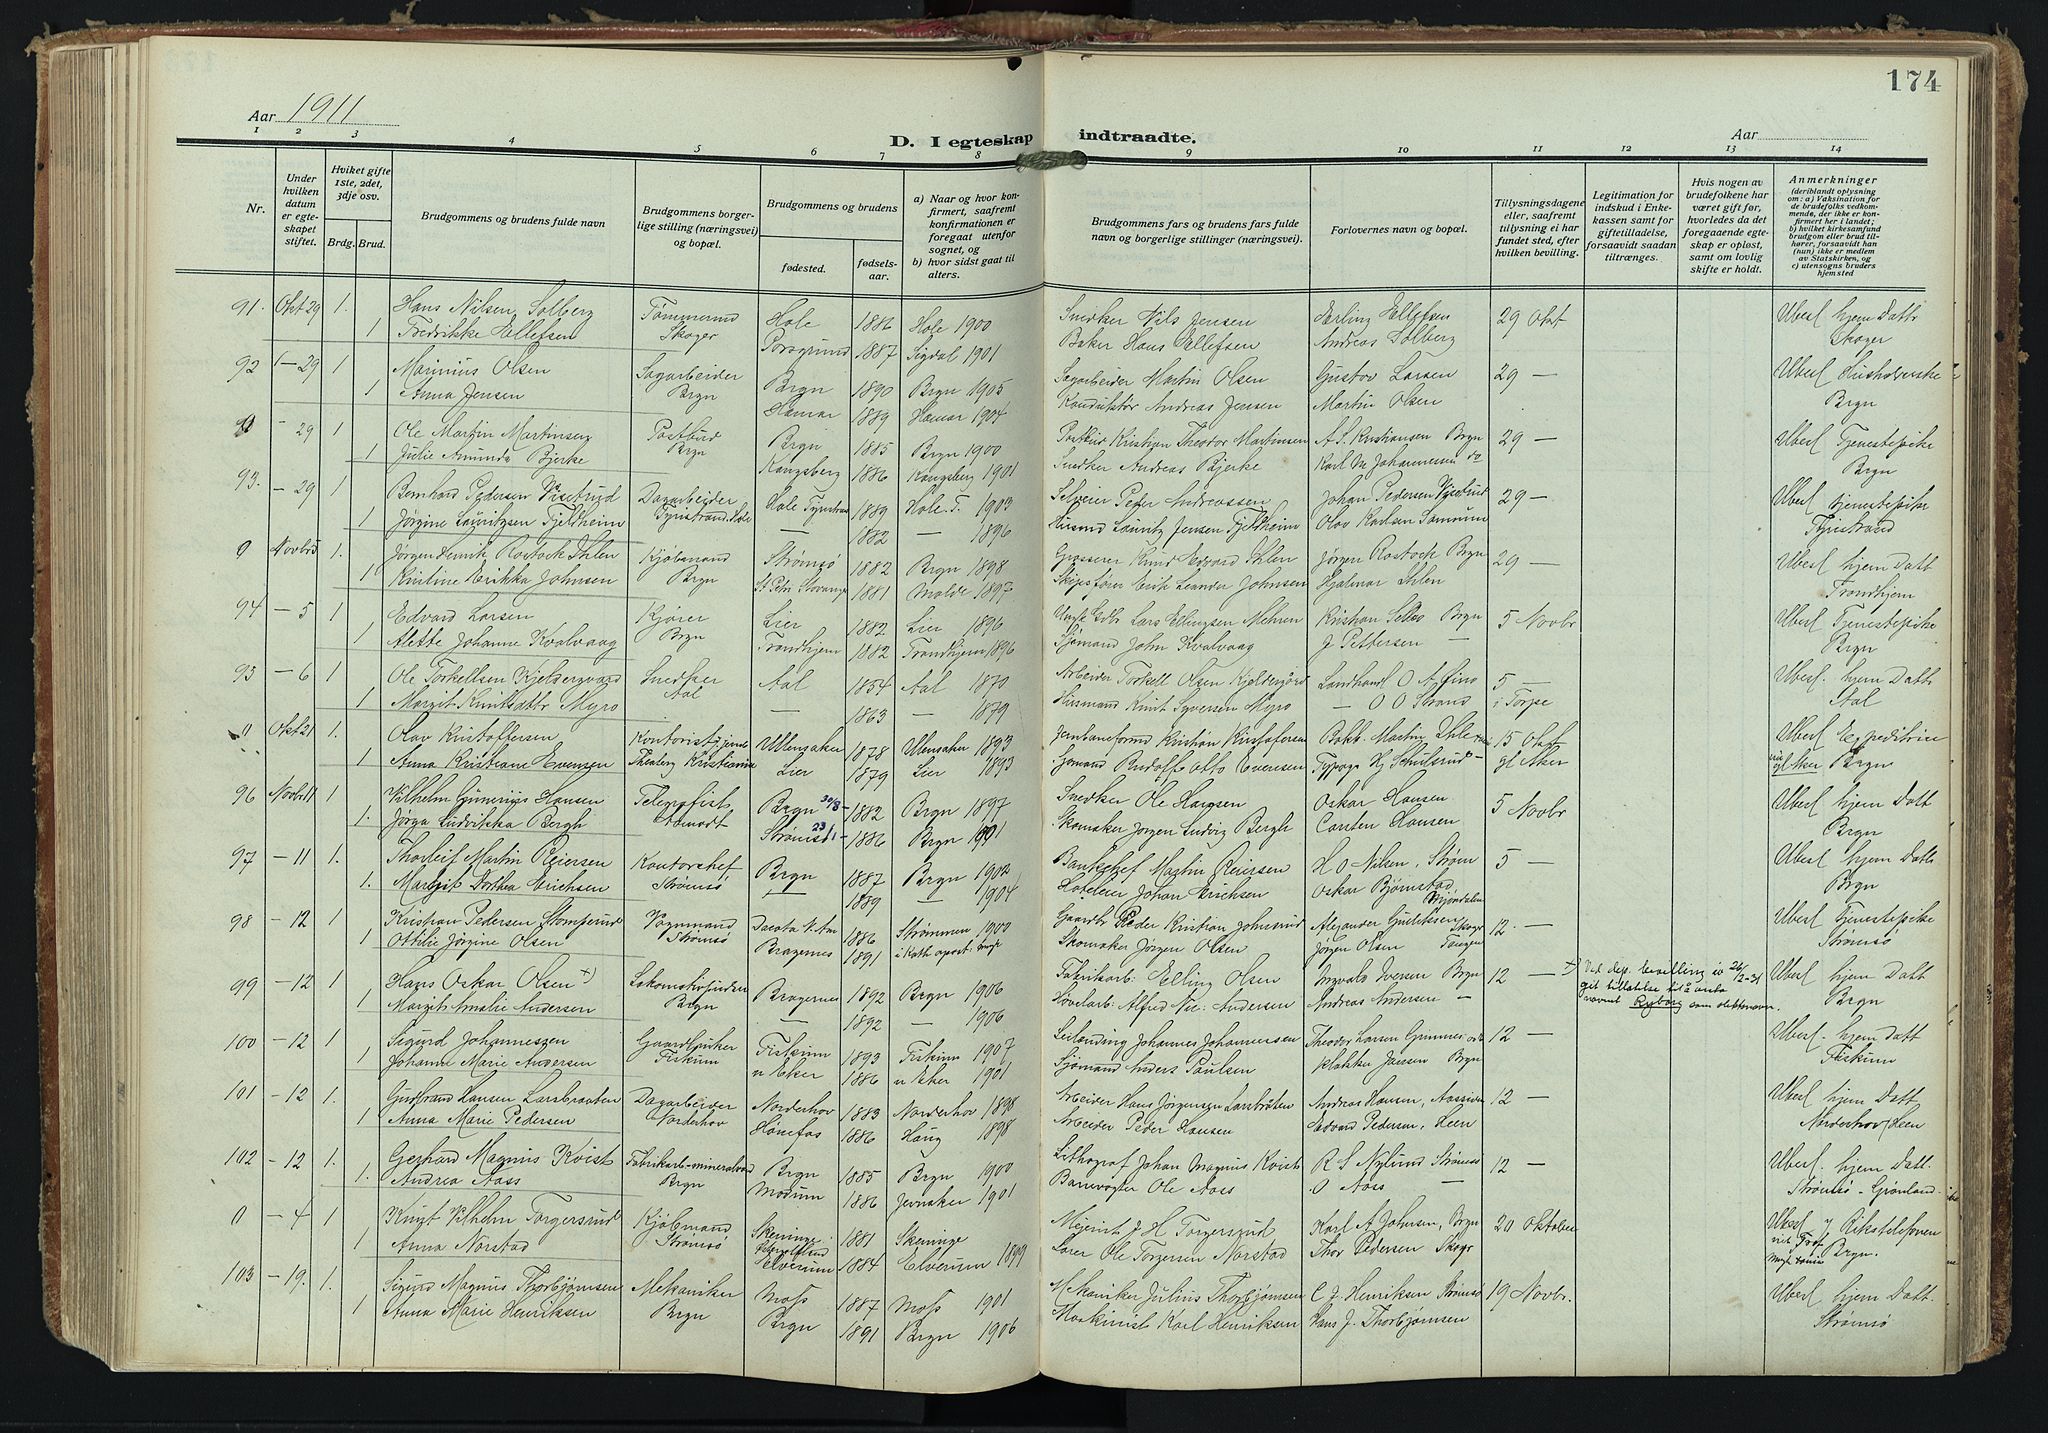 174
Aar 1911
D. I egteskap indtraadte.
Aar
1 2 3 4 5 6 7 8 9 10 11 12 13 14
Nr.
Under hvilken datum er egteskapet stiftet.
Hviket gifte 1ste, 2det, 3dje osv.
Brdg. Brud.
Brudgommens og brudens fulde navn
Brudgommens borgerlige stilling (næringsvei) og bopæl.
Brudgommens og brudens
fødested. fødselsaar.
a) Naar og hvor konfirmert, saafremt konfirmationen er foregaat utenfor sognet, og
b) hvor sidst gaat til alters.
Brudgommens fars og brudens fars fulde navn og borgerlige stillinger (næringsvei).
Forlovernes navn og bopæl.
Tillysningsdagene eller, saafremt tillysning ei har fundet sted, efter hvilken bevilling.
Legitimation for indskud i Enkekassen samt for giftetilladelse, forsaavidt saadan tiltrænges.
Hvis nogen av brudefolkene har været gift før, hvorledes da det foregaaende egteskap er opløst, samt om lovlig skifte er holdt.
Anmerkninger
(deriblandt oplysning om: a) Vaksination for de brudefolks vedkommende, der ikke er konfirmert her i landet; b) hvilket kirkesamfund brudgom eller brud tilhører, forsaavidt han (hun) ikke er medlem av Statskirken, og c) utensogns bruders hjemsted
91. Okt 29 1. Hans Nilsen Solberg Tømmermd Hole 1886 Hole 1900 Snedker Nils Jensen Erling Ellefsen 29 Okt Ubesl hjem Dattr
1 Fredrikke Ellefsen Skoger Porsgrund 1887 Sigdal 1901 Baker Hans Ellefsen Andreas Solberg Skoger
92 - 29 1 Marinius Olsen Sagarbeider Brgn 1890 Brgn 1905 Sagarbeider Martin Olsen Gustav Larsen 29 — Ubesl Husholderske
1 Anna Jensen Brgn Hamar 1889 Hamar 1904 Konduktør Andreas Jensen Martin Olsen Brgn
0 - 29 1 Ole Martin Martinsen Postbud Brgn 1885 Brgn 1900 Postbud Kristian Theodor Martinsen A. S. Kristiansen Brgn 29 — Ubesl Tjenestepike
1 Julie Amunda Bjerke Brgn Kongsberg 1886 Kongsberg 1901 Snedker Andreas Bjerke Karl M Johannesen do Brgn
93. - 29 1 Bernhard Pedersen Viselrud Dagarbeider Hole Tyristrand 1889 Hole. T. 1903 Selveier Peder Andreassen Johan Pedersen Viselrud 29 — Ubesl tjenestepike
1 Jørgine Lauritzen Fjeldheim Tyristrand. Hole — 1882 — 1896 Husmd Lauritz Jensen Fjeldheim Olav Karlsen Tyristrand
0 Novbr 5 1. Jørgen Henrik Rostock Ihlen Kjøbmand Strømsø 1882 Brgn 1898 Grosserer Knud Edvard Ihlen Jørgen Rostock Brgn 29 — Ubesl hjem Datt
1 Kristine Erikka Johnsen Brgn St Petri Stavanger 1881 Molde 1897 Skipsfører Erik Leander Johnsen Hjalmar Ihlen Trondhjem
94 - 5 1 Edvard Larsen Kjører Lier 1882 Lier 1896 Lars Ellingsen Mehren Kristian Brgn 5 Novbr Ubesl Tjenestepike
1 Alette Johanne Kvalvaag Brgn Trondhjem 1882 Trondhjem 1896 Sjømand John Kvalvaag J Pettersen — Brgn
95 - 6 1 Ole Torkellsen Snedker Aal 1854 Aal 1870 Arbeider Torkell Olsen Landhandl O A 5 — Ubesl. hjem Dattr
1 Margit Knutsdattr Myro Aal — 1863 — 1879 Husmand Knut Syversen Myro — O O Strand i Torpe Aal
0 Okt 21 1. Olav Kristoffersen Kontorist Ullensaker 1878 Ullensaker 1893 Kristian Kristofersen Martin Ihle 15 Okt Ubesl Expeditrice
1 Anna Kristiane Evensen Kristiania Lier 1879 Lier 1893 Sjømand Rudolf Otto Evensen Typogr Hj Schulsrud gl Aker gl Aker Brgn
96 Novbr 11 1 Vilhelm Hansen Telegrafist Brgn 30/3 1882 Brgn 1897 Snedker Ole Hansen Oskar Hansen 5 Novbr Ubesl hjem Datt
1. Jørga Ludvikka Bergh Strømsø 23/1 1886 Brgn 1901 Skomaker Jørgen Ludvig Bergh Carsten Hansen Brgn
97 - 11 1. Thorleif Martin Reiersen Kontorchef Brgn 1887 Brgn 1902 Bankchef Martin Reiersen H O Nilsen, Strøm 5 — Ubesl hjem Dattr
1. Margit Dorthea Erichsen Strømsø — 1889 — 1904 Hoteleier Johan Erichsen Oskar Bjørnstad Brgn
98 - 12 1 Kristian Pedersen Stomperud Vognmand Dacota N. Am 1886 Strømmen 1900 Gaardbr Peder Kristian Johnsrud Alexander Gulliksen Mjøndalen 12. — Ubesl Tjenestepike
1 Ottilie Jørgine Olsen Strømsø Bragernes 1891 i Kath apost: Skomaker Jørgen Olsen Jørgen Olsen Tangen Strømsø
99 - 12 1 Hans Oskar Olsen +) Lokomotivpudser Bragernes 1892 Brgn 1906 Fabrikarb. Elling Olsen Ingvald Iversen Brgn 12 — +) Ved dep. bevilling av 26/2-31 Ubesl hjem Datt
1 Margit Amalie Andersen Brgn — 1892 — 1906 Høvelarb. Alfred Nic: Andersen Andreas Andersen — git tillatelse til å anta navnet Ryborg som slektsnavn. Brgn
100 - 12 1 Sigurd Johannessen Gaardbruker Fiskum 1893 Fiskum 1907 Johannes Johannessen Theodor Larsen 12 — Ubesl. hjem Datt
1 Johanne Marie Andersen Fiskum n Eker 1886 n Eker 1901 Sjømand Anders Paulsen klokker Jansen Brgn Fiskum
101 - 12 1. Gudbrand Hansen Larsbraaten Dagarbeider Norderhov 1883 Norderhov 1898 Arbeider Hans Jørgensen Larsbråten Andreas Hansen, Aassiden 12 — Ubesl hjem Datt
1 Anna Marie Pedersen Norderhov Hønefos 1886 Haug 1898 Arbeider Peder Hansen Edvard Pedersen, Leen Norderhov/Leen
102 - 12 1. Gerhard Magnus Kvist Fabrikarb. mineralvand Brgn 1885 Brgn 1900 Lithograf Johan Magnus Kvist R S Nylund Strømsø 12 — Ubesl. hjem Datt.
1. Andrea Aass Brgn Modum 1886 Jevnaker 1901 Banevogter Ole Aass O Aass — Strømsø - Grønland
0 - 4 1 Knut Vilhelm Torgersrud Kjøbmand Skeninge 1881 Skeninge Mejerist J H Torgersrud Karl A Johnsen, Brgn 20 Oktober Ubesl Rikstelefonen
1 Anna Norstad Strømsø Elverum 1884 Elverum 1899 Lærer Ole Torgersen Norstad Thor Pedersen Skoger Brgn.
103 - 19. 1. Sigurd Magnus Thorbjørnsen Mekaniker Moss 1887 Moss 1901 Mekaniker Julius Thorbjørnsen C J Henriksen Strømsø 19 Novbr. Ubesl hjem Datt.
1 Anna Marie Henriksen Brgn Brgn 1891 Brgn 1906 Maskinist Karl Henriksen Hans J. Thorbjørnsen Strømsø